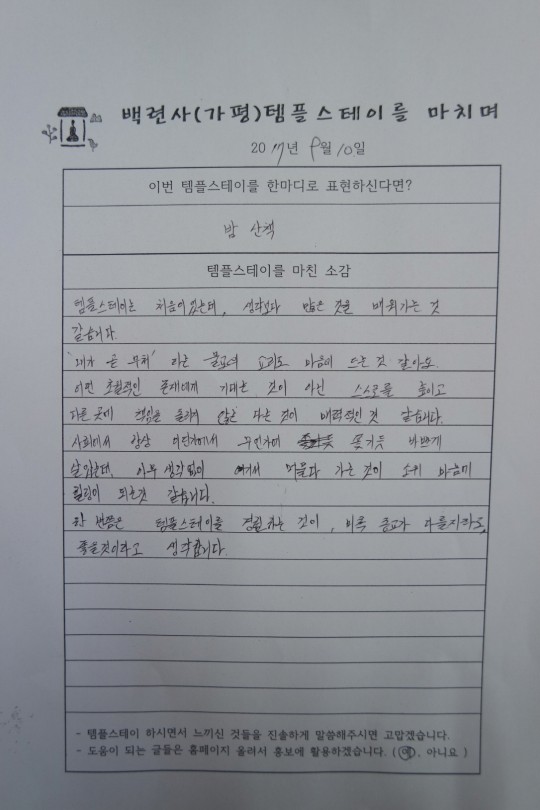 백련사(가평)템플스테이를 마치며
2017년 9월 10일
이번 템플스테이를 한마디로 표현하신다면?
밤 산책
템플스테이를 마친 소감
템플스테이는 처음이었는데, 생각보다 많은 것을 배워가는 것
같습니다.
'내가 곧 부처' 라는 불교의 교리도 마음에 드는 것 같아요.
어떤 초월적인 존재에게 기대는 것이 아닌 스스로를 높이고
다른 곳에 책임을 돌리지 않는 다는 것이 매력적인 것 같습니다.
사회에서 항상 어딘가에서 무언가에 쫓기듯 바쁘게
살았는데, 아무 생각없이 여기서 머물다 가는 것이 소위
힐링이 되는것 같습니다.
한 번쯤은 템플스테이를 경험하는 것이, 비록 종교가 다를지라도,
좋을것이라고 생각합니다.
- 템플스테이 하시면서 느끼신 것들을 진솔하게 말씀해주시면 고맙겠습니다.
- 도움이 되는 글들은 홈페이지 올려서 홍보에 활용하겠습니다. (예, 아니요 )